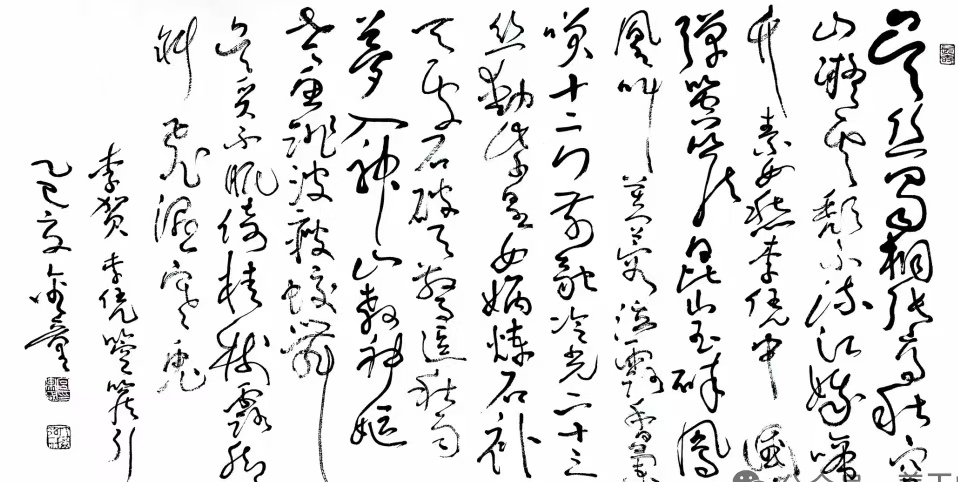 吴丝蜀桐张高秋空
山凝云颓不流江娥啼
竹素女愁李凭中國
弹箜篌昆山玉碎鳳
凰叫芙蓉泣露香兰
笑十二门前融冷光二十三
丝动紫皇女娲炼石补
天处石破天惊逗秋雨
梦入神山教神妪
老鱼跳波瘦蛟舞
吴质不眠倚桂树露脚
斜飞湿寒兔
李贺李凭箜篌引
乙巳夏